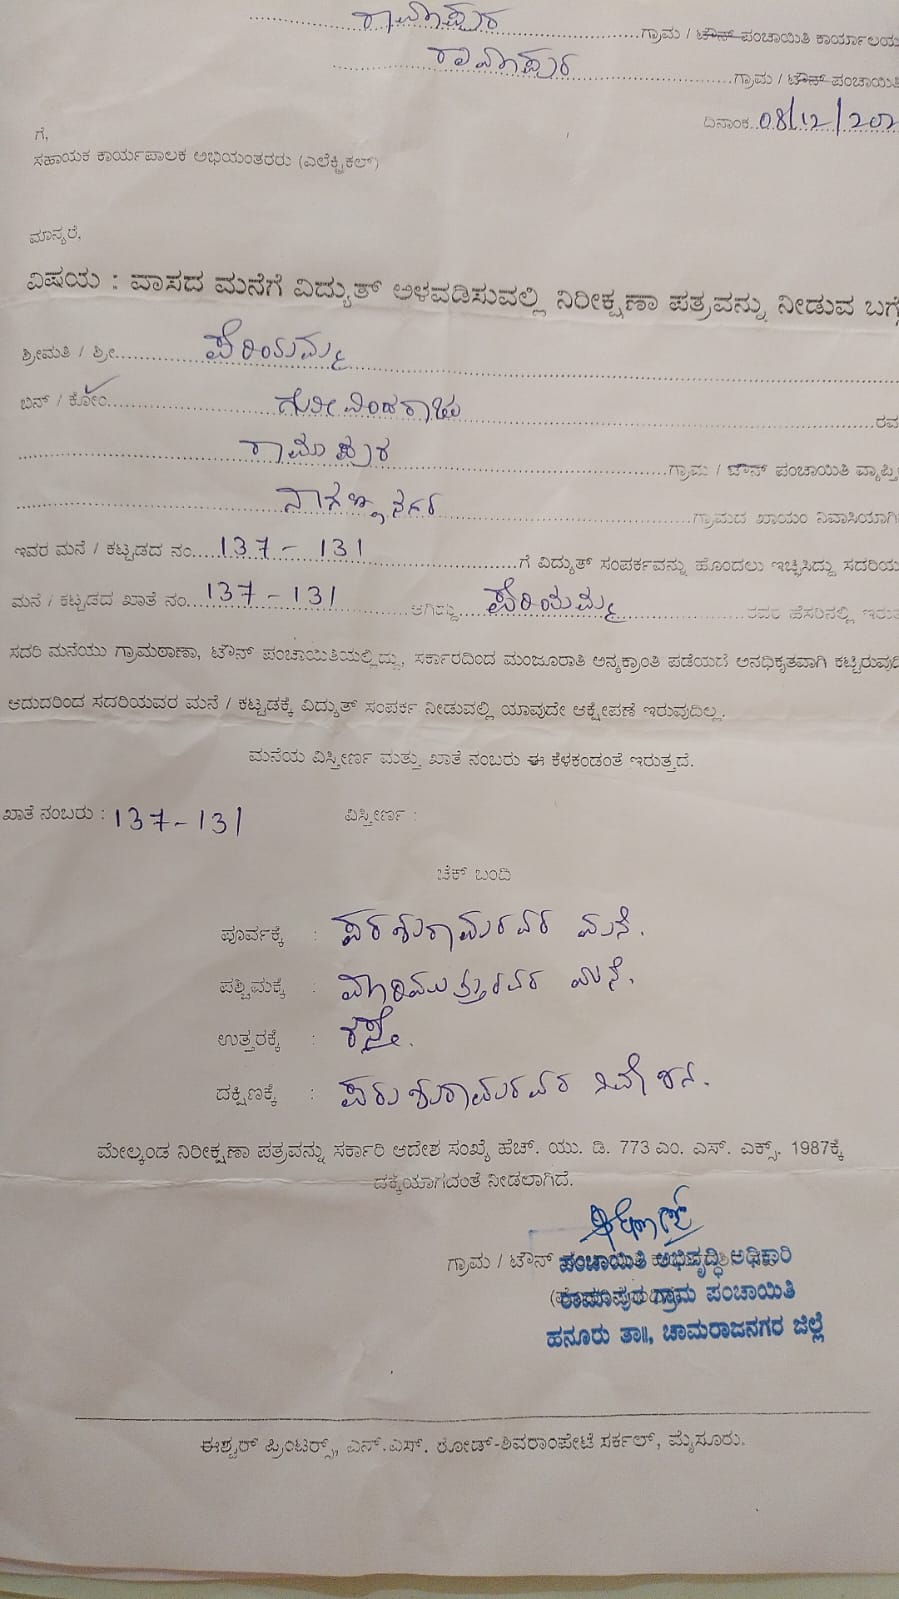 ರಾಮಾಪುರ ಗ್ರಾಮ / ಟೌನ್ ಪಂಚಾಯಿತಿ ಕಾರ್ಯಾಲಯ
ರಾಮಾಪುರ ಗ್ರಾಮ / ಟೌನ್ ಪಂಚಾಯಿತಿ
ದಿನಾಂಕ 08/12/202
ಗೆ,
ಸಹಾಯಕ ಕಾರ್ಯಪಾಲಕ ಅಭಿಯಂತರರು (ಎಲೆಕ್ಟ್ರಿಕಲ್)
ಮಾನ್ಯರೆ,
ವಿಷಯ : ವಾಸದ ಮನೆಗೆ ವಿದ್ಯುತ್ ಅಳವಡಿಸುವಲ್ಲಿ ನಿರೀಕ್ಷಣಾ ಪತ್ರವನ್ನು ನೀಡುವ ಬಗ್ಗೆ
ಶ್ರೀಮತಿ / ಶ್ರೀ ಪೆರಿಯಮ್ಮ
ಬಿನ್ / ಕೋಂ ಗೋವಿಂದರಾಜು ರವ
ರಾಮಪುರ ಗ್ರಾಮ / ಟೌನ್ ಪಂಚಾಯಿತಿ ವ್ಯಾಪ್ತಿ
ನಾಗಣ್ಣ ನಗರ ಗ್ರಾಮದ ಖಾಯಂ ನಿವಾಸಿಯಾಗಿ
ಇವರ ಮನೆ / ಕಟ್ಟಡದ ನಂ. 137-131 ಗೆ ವಿದ್ಯುತ್ ಸಂಪರ್ಕವನ್ನು ಹೊಂದಲು ಇಚ್ಛಿಸಿದ್ದು ಸದರಿಯ
ಮನೆ / ಕಟ್ಟಡದ ಖಾತೆ ನಂ. 137-131 ಆಗಿದ್ದು ಪೆರಿಯಮ್ಮ ರವರ ಹೆಸರಿನಲ್ಲಿ ಇರುತ
ಸದರಿ ಮನೆಯು ಗ್ರಾಮಠಾಣಾ, ಟೌನ್ ಪಂಚಾಯಿತಿಯಲ್ಲಿದ್ದು, ಸರ್ಕಾರದಿಂದ ಮಂಜೂರಾತಿ ಅನ್ಯಕ್ರಾಂತಿ ಪಡೆಯದೆ ಅನಧಿಕೃತವಾಗಿ ಕಟ್ಟಿರುವುದ
ಆದುದರಿಂದ ಸದರಿಯವರ ಮನೆ / ಕಟ್ಟಡಕ್ಕೆ ವಿದ್ಯುತ್ ಸಂಪರ್ಕ ನೀಡುವಲ್ಲಿ ಯಾವುದೇ ಆಕ್ಷೇಪಣೆ ಇರುವುದಿಲ್ಲ.
ಮನೆಯ ವಿಸ್ತೀರ್ಣ ಮತ್ತು ಖಾತೆ ನಂಬರು ಈ ಕೆಳಕಂಡಂತೆ ಇರುತ್ತದೆ.
ಖಾತೆ ನಂಬರು : 137-131 ವಿಸ್ತೀರ್ಣ :
ಚೆಕ್ ಬಂದಿ
ಪೂರ್ವಕ್ಕೆ : ಪರಶುರಾಮರವರ ಮನೆ.
ಪಶ್ಚಿಮಕ್ಕೆ : ಮಾರಿಮುತ್ತುರವರ ಮನೆ.
ಉತ್ತರಕ್ಕೆ : ರಸ್ತೇ.
ದಕ್ಷಿಣಕ್ಕೆ : ಪರುಶುರಾಮರವರ ನಿವೇಶನ.
ಮೇಲ್ಕಂಡ ನಿರೀಕ್ಷಣಾ ಪತ್ರವನ್ನು ಸರ್ಕಾರಿ ಆದೇಶ ಸಂಖ್ಯೆ ಹೆಚ್. ಯು. ಡಿ. 773 ಎಂ. ಎಸ್. ಎಕ್ಸ್. 1987ಕ್ಕೆ
ದಕ್ಕೆಯಾಗದಂತೆ ನೀಡಲಾಗಿದೆ.
ಗ್ರಾಮ / ಟೌನ್ ಪಂಚಾಯಿತಿ ಅಭಿವೃದ್ಧಿ ಅಧಿಕಾರಿ
ರಾಮಾಪುರ ಗ್ರಾಮ ಪಂಚಾಯಿತಿ
ಹನೂರು ತಾ॥, ಚಾಮರಾಜನಗರ ಜಿಲ್ಲೆ
ಈಶ್ವರ್ ಪ್ರಿಂಟರ್ಸ್, ಎನ್.ಎಸ್. ರೋಡ್-ಶಿವರಾಂಪೇಟೆ ಸರ್ಕಲ್, ಮೈಸೂರು.